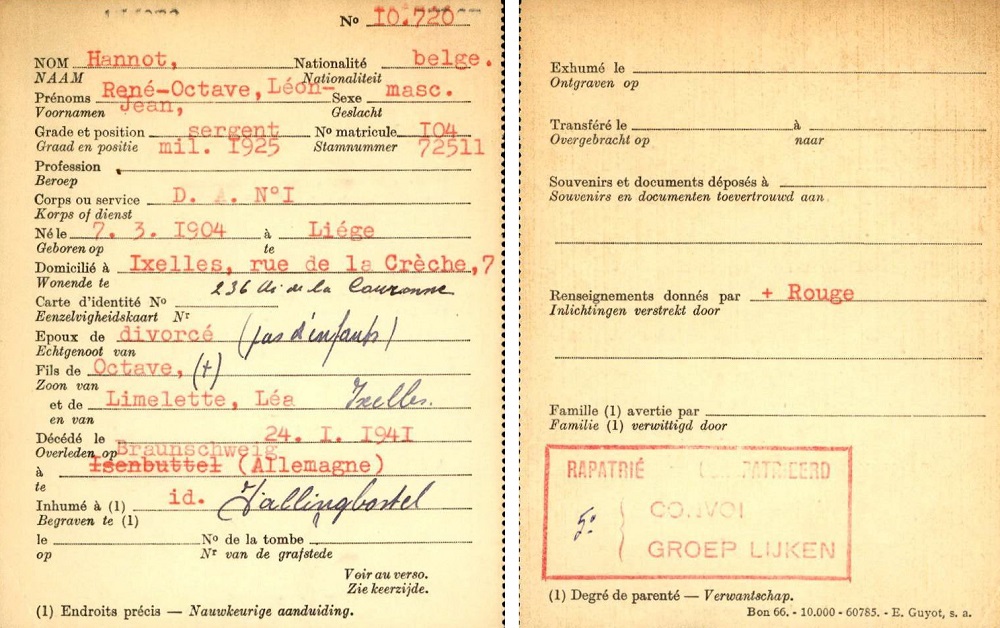 Nº 10.720
NOM Hannot, Nationalité belge.
NAAM Nationaliteit
Prénoms René-Octave, Léon- Sexe masc.
Voornamen Jean, Geslacht
Grade et position sergent Nº matricule I04
Graad en positie mil. I925 Stamnummer 72511
Profession
Beroep
Corps ou service D. A. N°I
Korps of dienst
Né le 7. 3. I904 à Liége
Geboren op te
Domicilié à Ixelles, rue de la Crèche,7
Wonende te 236 Av. de la Couronne
Carte d'identité Nº
Eenzelvigheidskaart Nr
Epoux de divorcé (pas d'enfants)
Echtgenoot van
Fils de Octave, (+)
Zoon van
et de Limelette, Léa Ixelles.
en van
Décédé le 24. I. I94I
Overleden op Braunschweig
à Isenbuttel (Allemagne)
te
Inhumé à (1) id. Fallingbostel
Begraven te (1)
le Nº de la tombe
op Nr van de grafstede
Voir au verso.
Zie keerzijde.
(1) Endroits précis — Nauwkeurige aanduiding.
Exhumé le
Ontgraven op
Transféré le à
Overgebracht op naar
Souvenirs et documents déposés à
Souvenirs en documenten toevertrouwd aan
Renseignements donnés par + Rouge
Inlichtingen verstrekt door
Famille (1) avertie par
Familie (1) verwittigd door
RAPATRIÉ
5º CONVOI
GROEP LIJKEN
(1) Degré de parenté — Verwantschap.
Bon 66. - 10.000 - 60785. - E. Guyot, s. a.